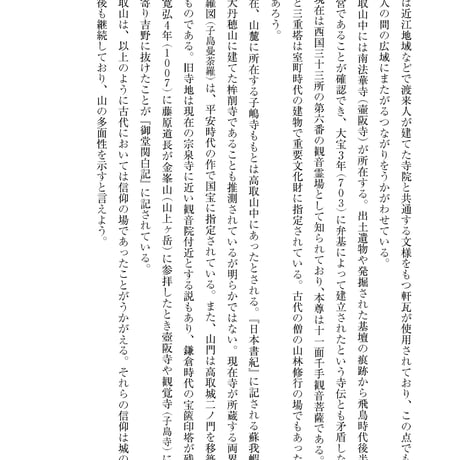 は近江地域などで渡来人が建てた寺院と共通する文様をもつ軒瓦が使用されており、この点でも
人の間の広域にまたがるつながりをうかがわせている。
取山中には南法華寺（壺阪寺）が所在する。出土遺物や発掘された基壇の痕跡から飛鳥時代後半
営であることが確認でき、大宝３年（７０３）に弁基によって建立されたという寺伝とも矛盾した
現在は西国三十三所の第六番の観音霊場として知られており、本尊は十一面千手観音菩薩である。
と三重塔は室町時代の建物で重要文化財に指定されている。古代の僧の山林修行の場でもあった
あろう。
在、山麓に所在する子嶋寺ももとは高取山中にあったとされる。『日本書紀』に記される蘇我蝦
大丹穂山に建てた桙削寺であることも推測されているが明らかではない。現在寺が所蔵する両界
羅図（子島曼荼羅）は、平安時代の作で国宝に指定されている。また、山門は高取城二ノ門を移築
ものである。旧寺地は現在の宗泉寺に近い観音院付近とする説もあり、鎌倉時代の宝篋印塔が残
寛弘４年（１００７）に藤原道長が金峯山（山上ヶ岳）に参拝したとき壺阪寺や観覚寺（子島寺）に
寄り吉野に抜けたことが『御堂関白記』に記されている。
取山は、以上のように古代においては信仰の場であったことがうかがえる。それらの信仰は城の
後も継続しており、山の多面性を示すと言えよう。